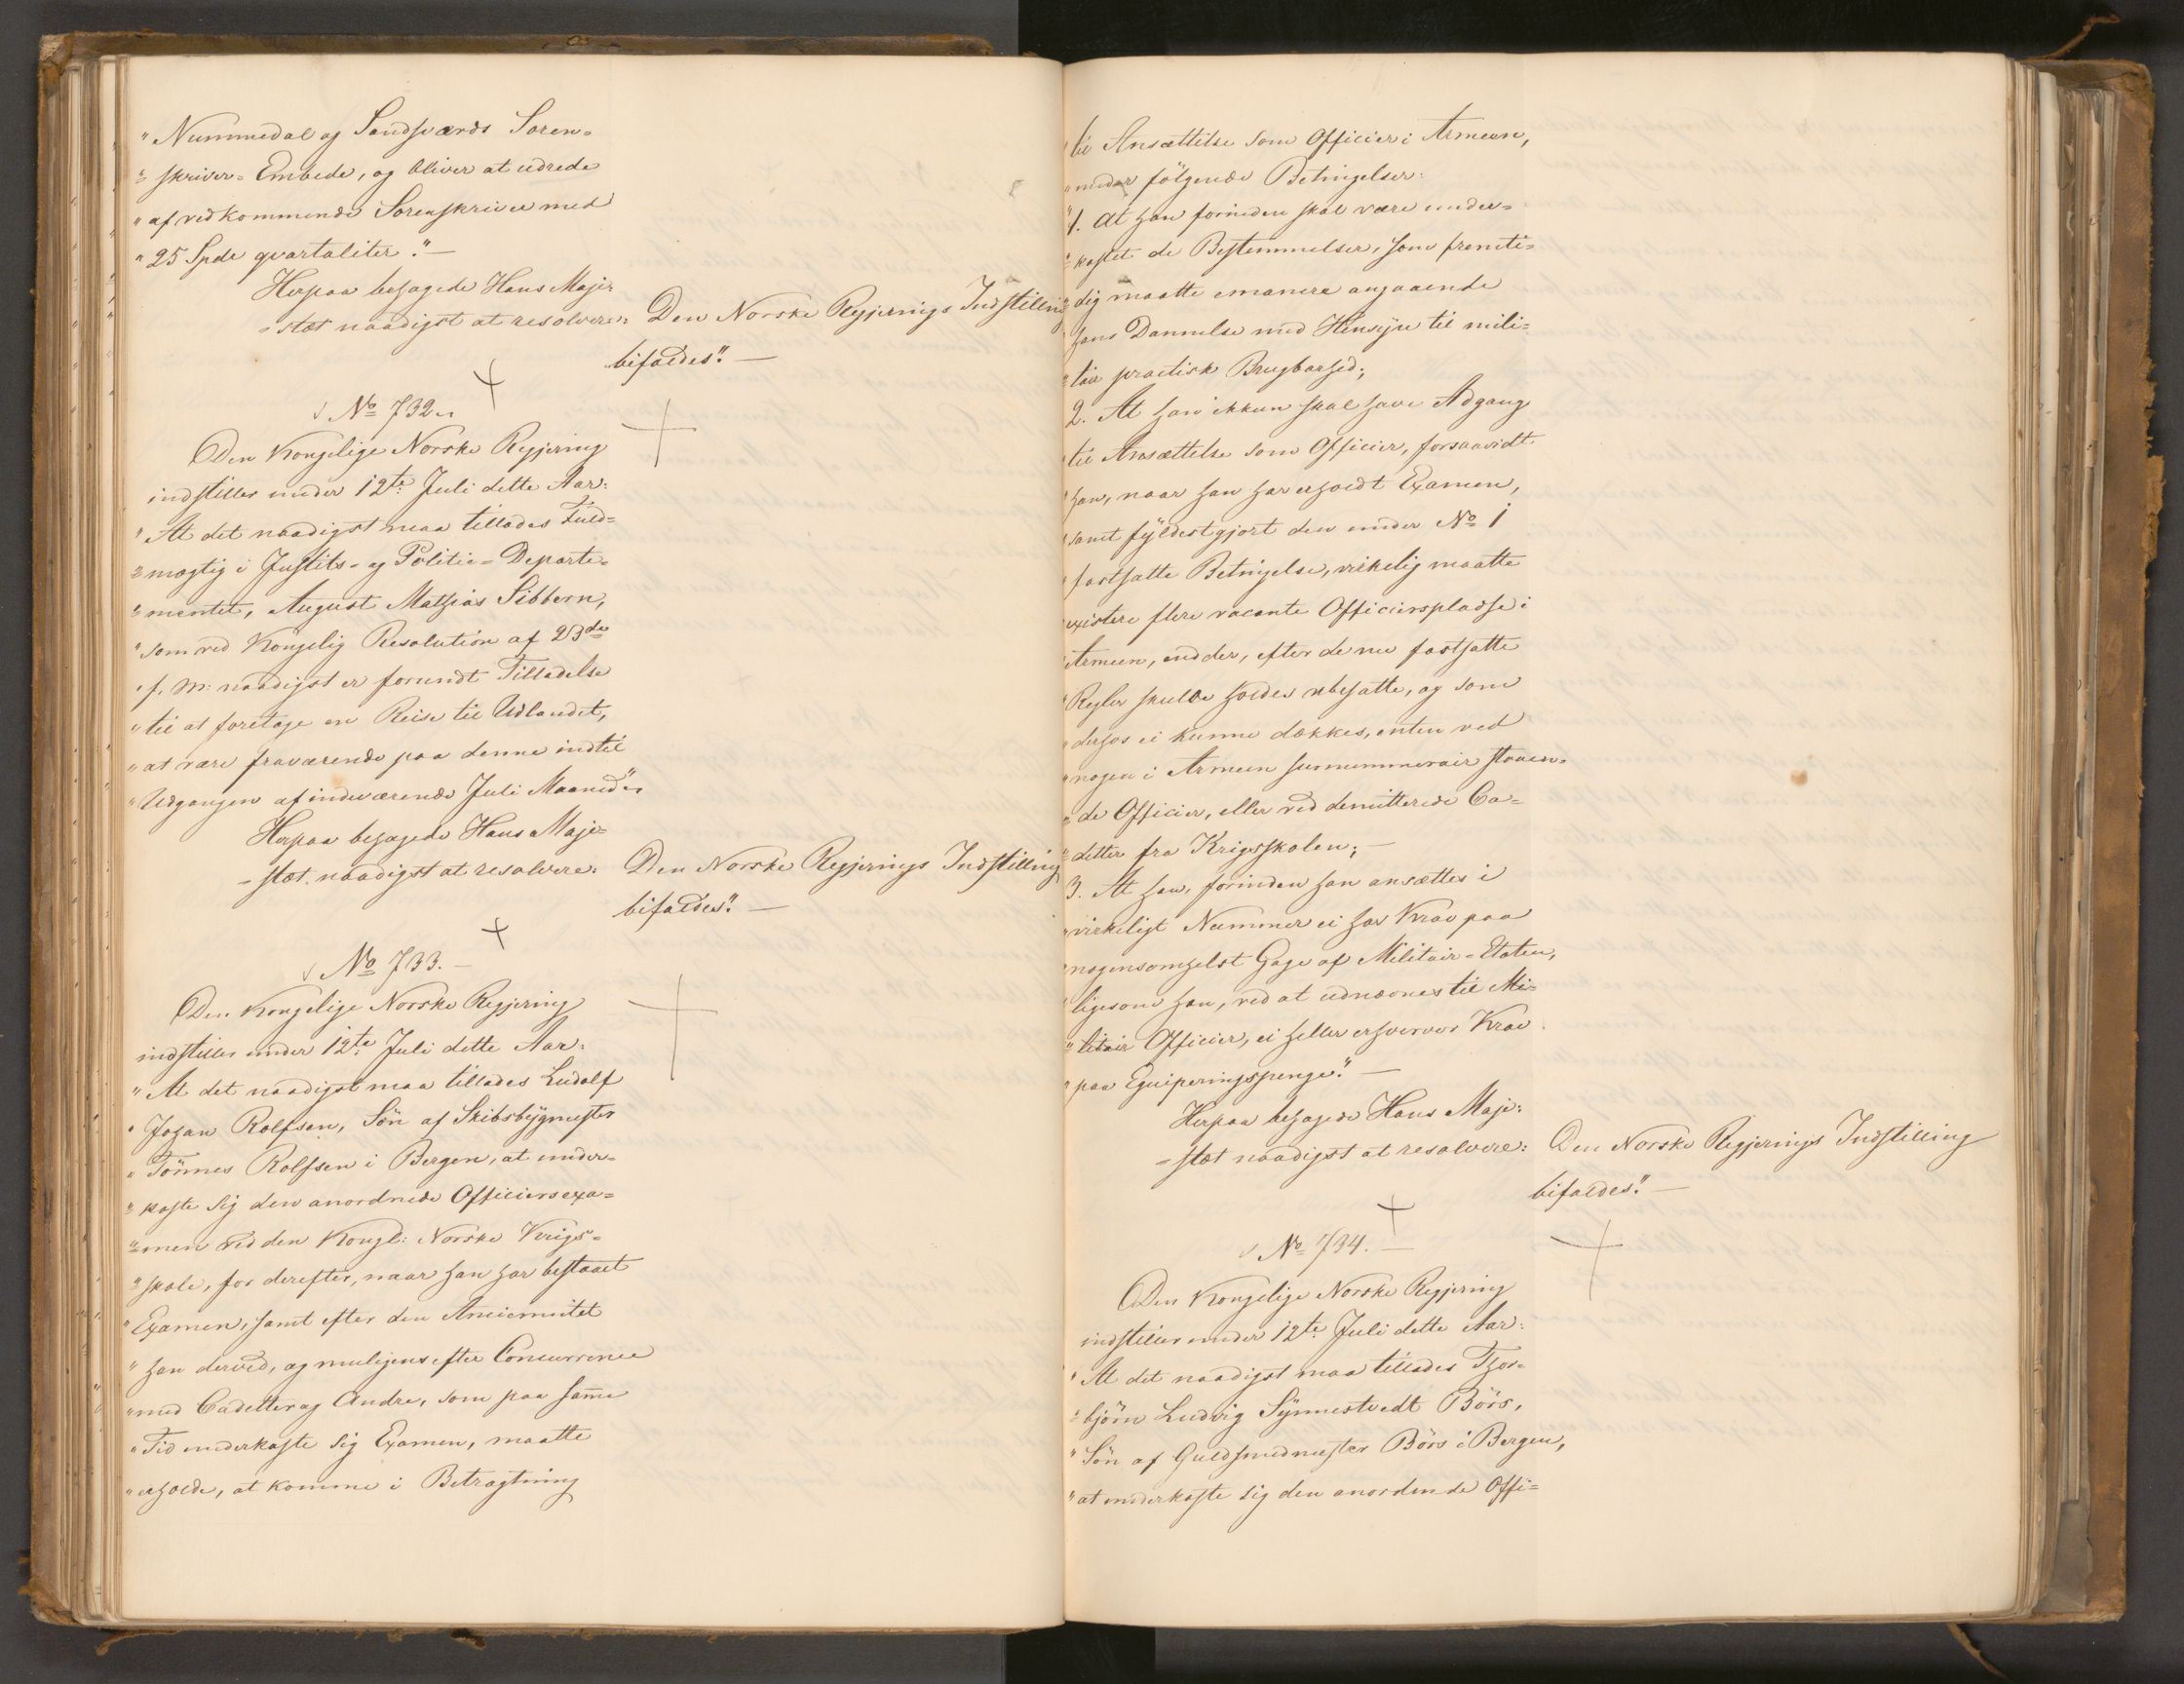 "Nummedal og Sandsværds Soren=
"=skriver=Embede, og bliver at udrede
"af vedkommende Sorenskriver med
"25 Spdr qvartaliter."—
Herpaa behagede Hans Maje=
=stæt naadigst at resolvere: Den Norske Regjerings Indstilling
bifaldes".—
No 732.
Den Kongelige Norske Regjering
indstiller under 12te Juli dette Aar:
"At det naadigst maa tillades Fuld=
"=mægtig i Justits- og Politie=Departe=
"=mentet, August Mathias Sibbern,
"som ved Kongelig Resolution af 23de
"f. M. naadigst er forundt Tilladelse
"til at foretage en Reise til Udlandet,
"at være fraværende paa denne indtil
"Udgangen af indeværende Juli Maaned".
Herpaa behagede Hans Maje=
=stæt naadigst at resolvere: Den Norske Regjerings Indstilling
bifaldes".—
No 733.—
Den Kongelige Norske Regjering
indstiller under 12te Juli dette Aar:
"At det naadigst maa tillades Ludolf
"Johan Rolfsen, Sön af Skibsbÿgmester
"Tönnes Rolfsen i Bergen, at under=
"=kaste sig den anordnede Officiersexa=
"=men ved den Kongl: Norske Krigs=
"=skole, for derefter, naar han har bestaaet
"Examen, samt efter den Anciennitet
"han derved, og muligens efter Concurrence
"med Cadetter og Andre, som paa samme
"Tid underkaste sig Examen, maatte
"erholde, at komme i Betragtning
"til Ansættelse som Officier i Armeen,
"under fölgende Betingelser:
"1. at han forinden skal være under=
"=kastet de Bestemmelser, som fremti=
"=dig maatte emanere angaaende
"hans Dannelse med Hensÿn til mili=
"=tair practisk Brugbarhed;
"2. At han ikkun skal have Adgang
"til Ansættelse som Officier, forsaavidt
"han, naar han har erholdt Examen,
"samt fÿldestgjort den under No 1
"fastsatte Betingelse, virkelig maatte
"existere flere vacante Officierspladse i
"Armeen, end der, efter de nu fastsatte
"Regler skulde holdes ubesatte, og som
"derhos ei kunne dækkes, enten ved
"nogen i Armeen surnummerair staaen=
"=de Officier, eller ved demitterede Ca=
"=detter fra Krigsskolen;—
"3. At han, forinden han ansættes i
"virkeligt Nummer ei har Krav paa
"nogensomhelst Gage af Militair=Etaten,
"ligesom han, ved at udnævnes til Mi=
"=litair Officier, ei heller erhverver Krav
"paa Equiperingspenge."—
Herpaa behagede Hans Maje=
=stæt naadigst at resolvere: Den Norske Regjerings Indstilling
bifaldes".—
No 734.—
Den Kongelige Norske Regjering
indstiller under 12te Juli dette Aar:
"At det naadigst maa tillades Thor=
"=björn Ludvig Sÿnnestvedt Börs,
"Sön af Guldsmedmester Börs i Bergen,
"at underkaste sig den anordende Offi=